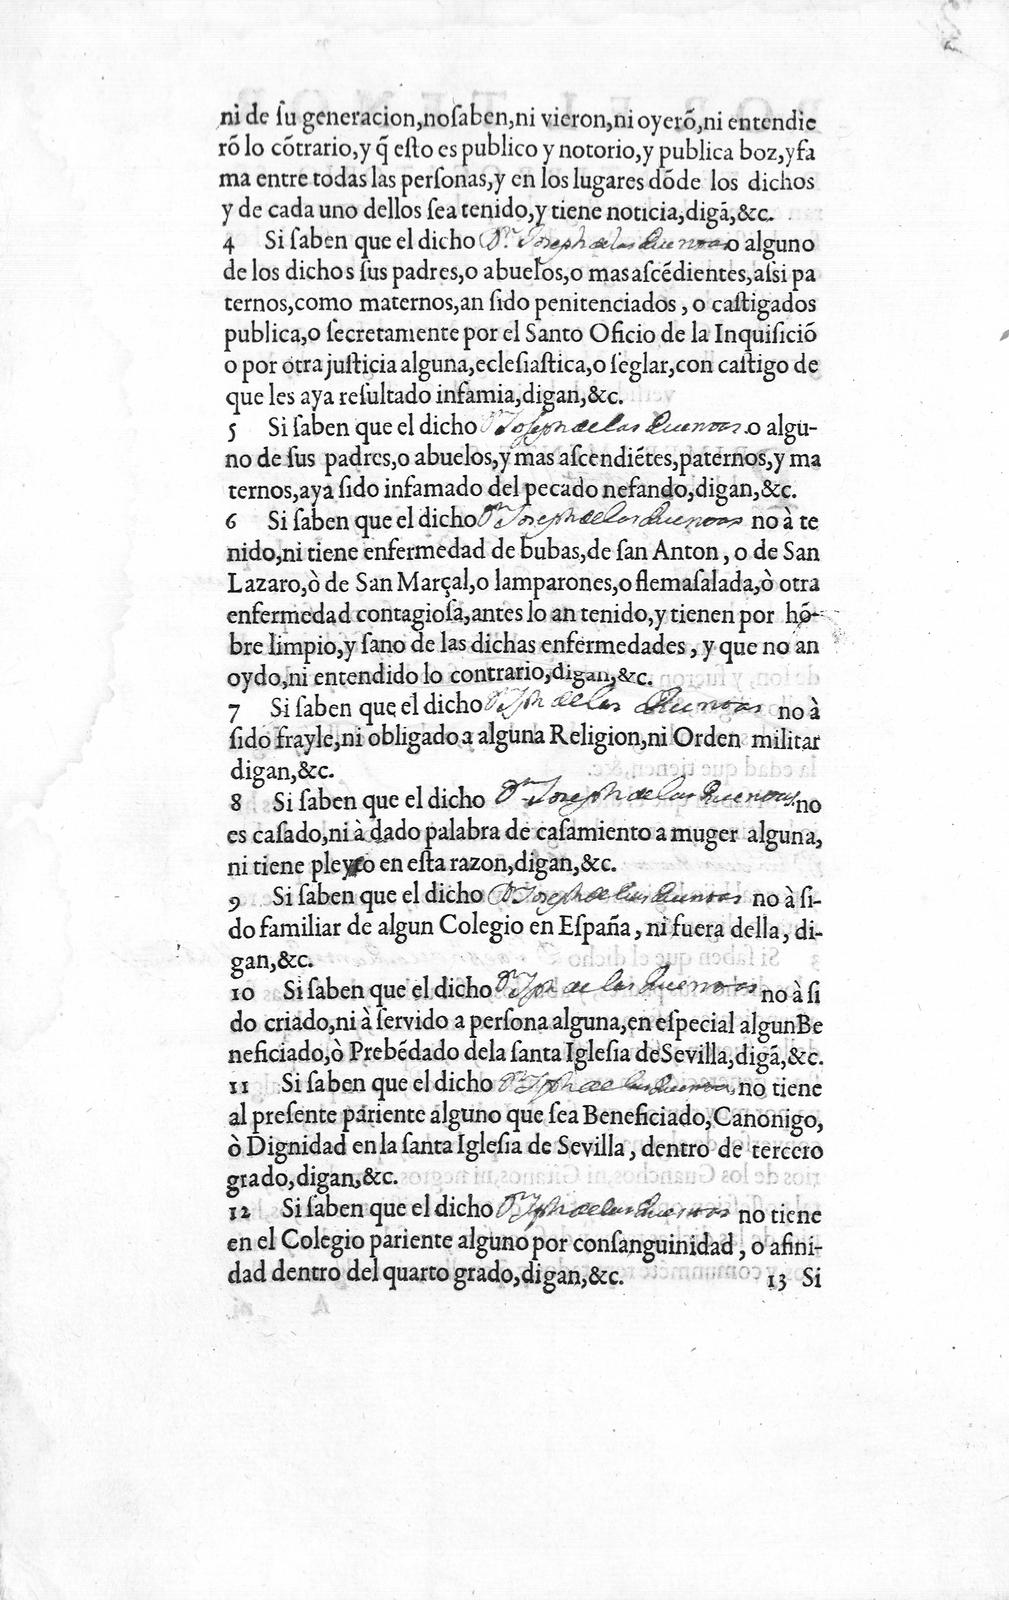 ni de ſu generacion,noſaben,ni vieron,ni oyerõ,ni entendie
rõ lo cõtrario,y q̃ eſto es publico y notorio,y publica boz,yfa
ma entre todas las perſonas,y en los lugares dõde los dichos
y de cada uno dellos ſea tenido,y tiene noticia,digã,&c.
4 Si ſaben que el dicho Dⁿ. Joseph de las Quentas o alguno
de los dichos ſus padres,o abuelos,o mas aſcẽdientes,aſsi pa
ternos,como maternos,an ſido penitenciados, o caſtigados
publica,o ſecretamente por el Santo Oficio de la Inquiſiciõ
o por otra juſticia alguna,ecleſiaſtica,o ſeglar,con caſtigo de
que les aya reſultado infamia,digan,&c.
5 Si ſaben que el dicho Dⁿ Joseph de las Quentas .o algu-
no de ſus padres,o abuelos,y mas aſcendiẽtes,paternos,y ma
ternos,aya ſido infamado del pecado nefando,digan,&c.
6 Si ſaben que el dicho Dⁿ Joseph de las Quentas no à te
nido,ni tiene enfermedad de bubas,de ſan Anton, o de San
Lazaro,ò de San Marçal,o lamparones,o flemaſalada,ò otra
enfermedad contagioſa,antes lo an tenido,y tienen por hõ-
bre limpio,y ſano de las dichas enfermedades, y que no an
oydo,ni entendido lo contrario,digan,&c.
7 Si ſaben que el dicho Dⁿ Jph de las Quentas no à
ſido frayle,ni obligado a alguna Religion,ni Orden militar
digan,&c.
8 Si ſaben que el dicho Dⁿ Joseph de las Quentas no
es caſado,ni à dado palabra de caſamiento a muger alguna,
ni tiene pleyto en eſta razon,digan,&c.
9 Si ſaben que el dicho Dⁿ Joseph de las Quentas no à ſi-
do familiar de algun Colegio en Eſpaña, ni fuera della, di-
gan,&c.
10 Si ſaben que el dicho Dⁿ Jph de las Quentas no à ſi
do criado,ni à ſervido a perſona alguna,en eſpecial algunBe
neficiado,ò Prebẽdado dela ſanta Igleſia deSevilla,digã,&c.
11 Si ſaben que el dicho Dⁿ Jph de las Quentas, no tiene
al preſente pariente alguno que ſea Beneficiado,Canonigo,
ò Dignidad en la ſanta Igleſia de Sevilla, dentro de tercero
grado,digan,&c.
12 Si ſaben que el dicho Dⁿ Jph de las Quentas no tiene
en el Colegio pariente alguno por conſanguinidad, o afini-
dad dentro del quarto grado,digan,&c. 13 Si